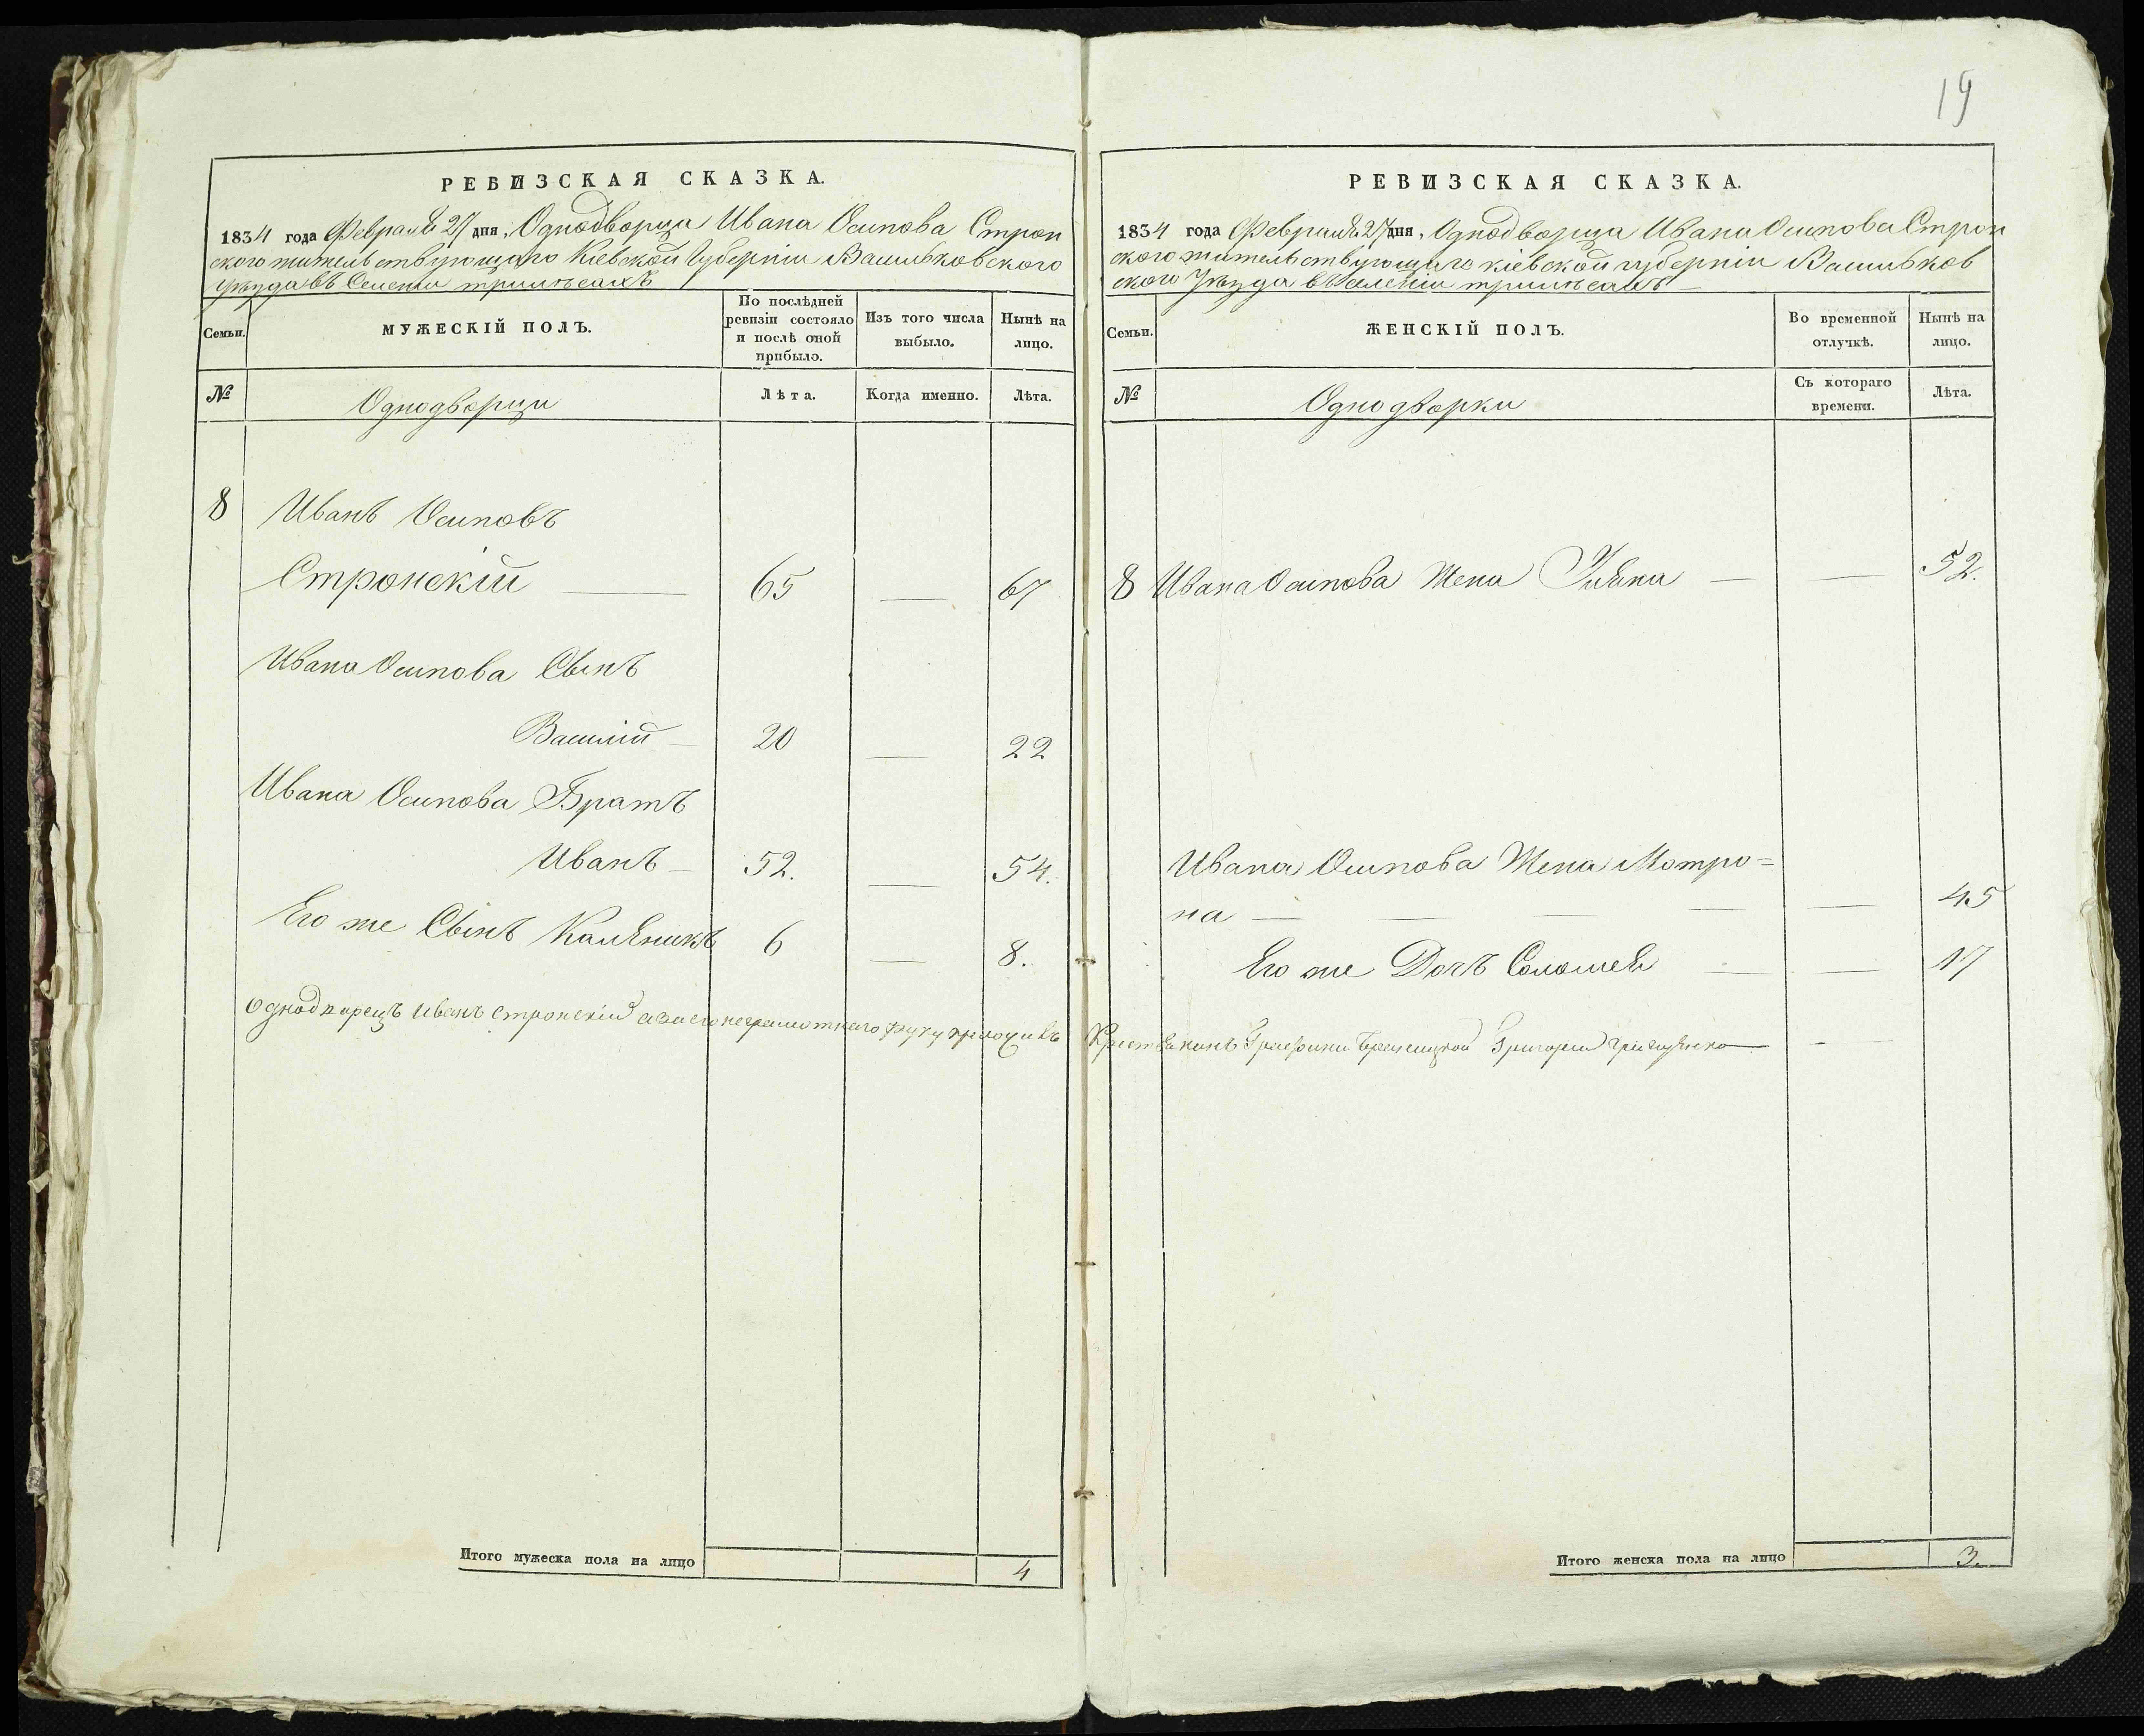 19
РЕВИЗСКАЯ СКАЗКА.
1834 года Февраля 27 дня, Однодворца Ивана Осипова Строн
ского жительствующаго Кіевской Губерніи Васильковского
уезда въ Селеніи трилѣсахъ
Семьи.
МУЖЕСКІЙ ПОЛЪ.
По послѣдней
ревизіи состояло
и послѣ оной
прибыло.
Изъ того числа
выбыло.
Нынѣ на
лицо.
№
Однодворцы
Лѣта.
Когда именно.
Лѣта.
8 Иванъ Осиповъ
Стронскій — 65 — 67
Ивана Осипова Сынъ
Василій — 20 — 22
Ивана Осипова Братъ
Иванъ — 52. — 54.
Его же Сынъ Каляникъ 6 — 8.
Однодворецъ Иванъ Стронскій а за его неграмотнаго руку приложилъ
Итого мужеска пола на лицо 4
РЕВИЗСКАЯ СКАЗКА.
1834 года Февраля 27 дня, Однодворца Ивана Осипова Строн
ского жительствующаго кіевской губерніи Васильков
ского Уѣзда въ Селеніи трилѣсахъ —
Семьи.
ЖЕНСКІЙ ПОЛЪ.
Во временной
отлучкѣ.
Нынѣ на
лицо.
№
Однодворки
Съ котораго
времени.
Лѣта.
8 Ивана Осипова Жена Уляна — — 52.
Ивана Осипова Жена Мотро=
на — — — — — 45
Его же Дочъ Соломея — — 17
Крестянинъ Графини Браницкой Григорій —
Итого женска пола на лицо 3.